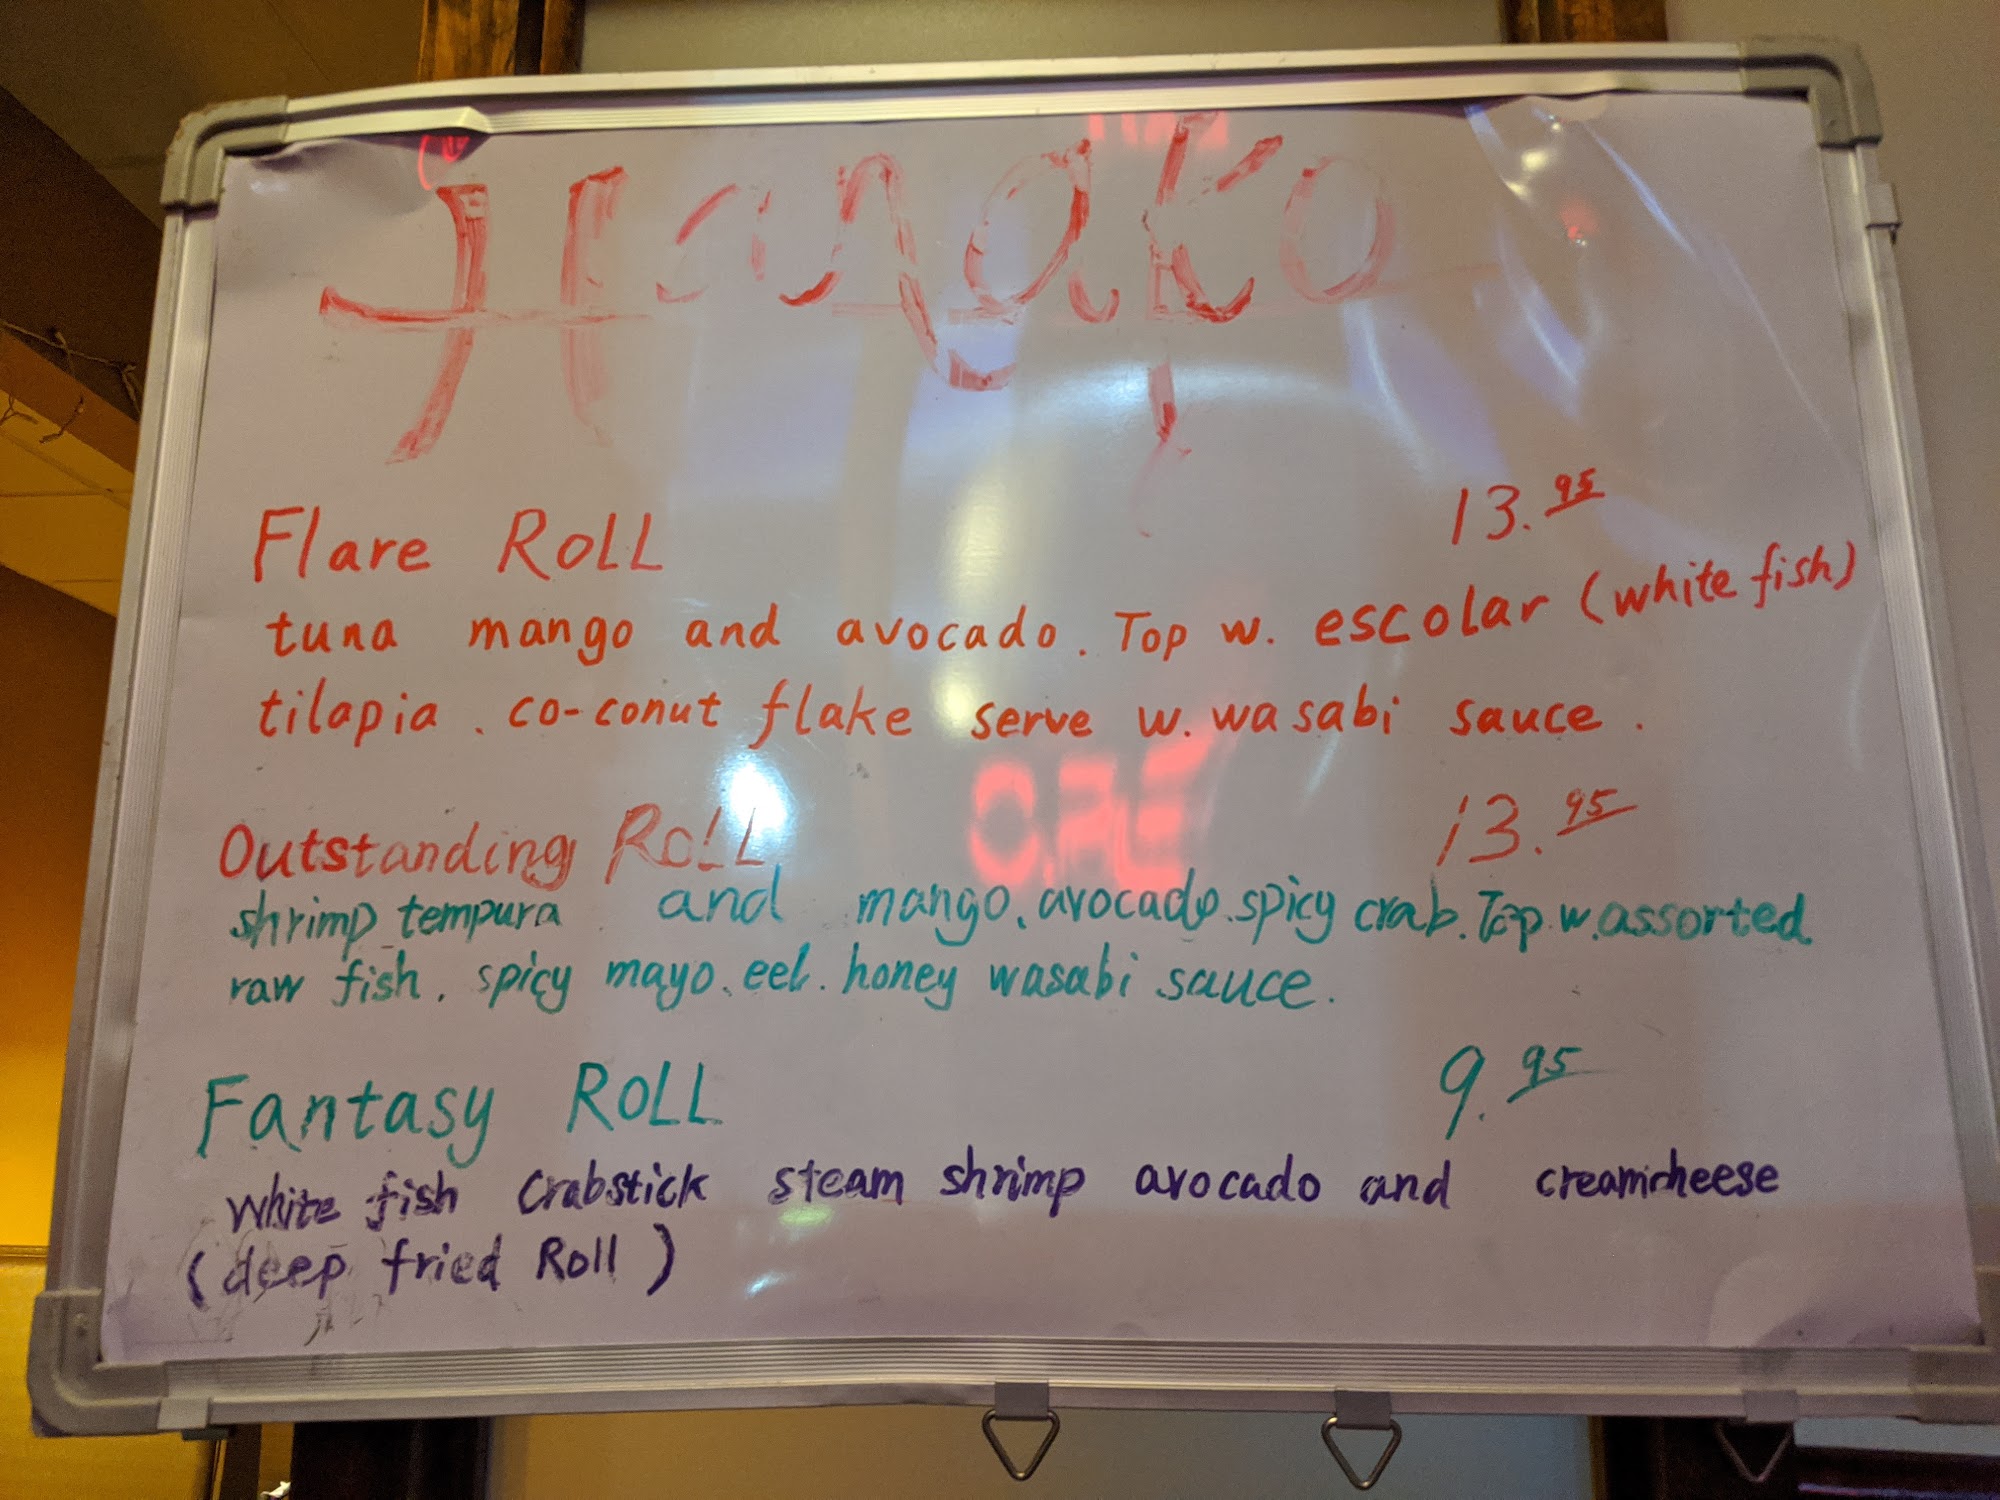 Hanako
Flare RoLL 13.95
tuna mango and avocado. Top w. escolar (white fish)
tilapia. co-conut flake serve w. wasabi sauce.
Outstanding RoLL 13.95
shrimp tempura and mango. avocado. spicy crab. Top w. assorted
raw fish. spicy mayo. eel. honey wasabi sauce.
Fantasy RoLL 9.95
white fish crabstick steam shrimp avocado and creamcheese
(deep fried Roll)